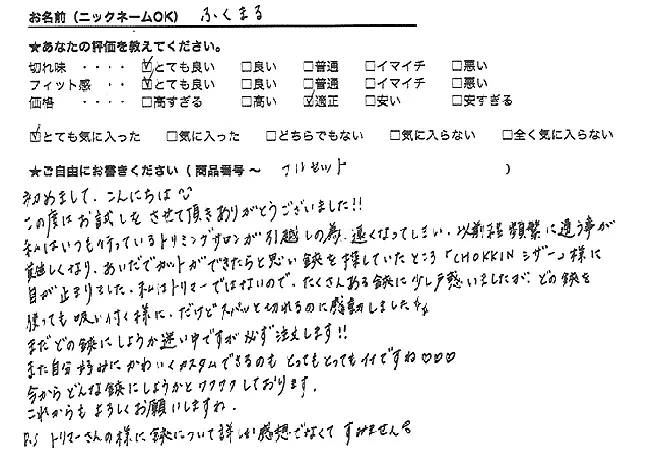 お名前（ニックネームOK） ふくまる
★あなたの評価を教えてください。
切れ味 ・・・・ ☑とても良い □良い □普通 □イマイチ □悪い
フィット感 ・・ ☑とても良い □良い □普通 □イマイチ □悪い
価格 ・・・・ □高すぎる □高い ☑適正 □安い □安すぎる
☑とても気に入った □気に入った □どちらでもない □気に入らない □全く気に入らない
★ご自由にお書きください（商品番号～ フルセット ）
初めまして、こんにちは
この度はお試しをさせて頂きありがとうございました!!
私はいつも行っているトリミングサロンが引越しの為、遠くなってしまい、以前程頻繁に通う事が
難しくなり、あいだでカットができたらと思い鋏を探していたところ「CHOKKINシザー」様に
目が止まりました。私はトリマーではないので、たくさんある鋏に少し戸惑いましたが、どの鋏を
使っても吸い付く様に、だけどスパッと切れるのに感動しました
まだどの鋏にしようか迷い中ですが必ず注文します!!
また自分好みにかわいくカスタムできるのもとってもとってもイイですね♡♡♡
今からどんな鋏にしようかとワクワクしております。
これからもよろしくお願いしますね。
P.S トリマーさんの様に鋏について詳しい感想でなくてすみません